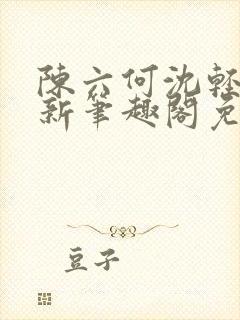 陳六何沈輕
新筆趣閣免
豆子